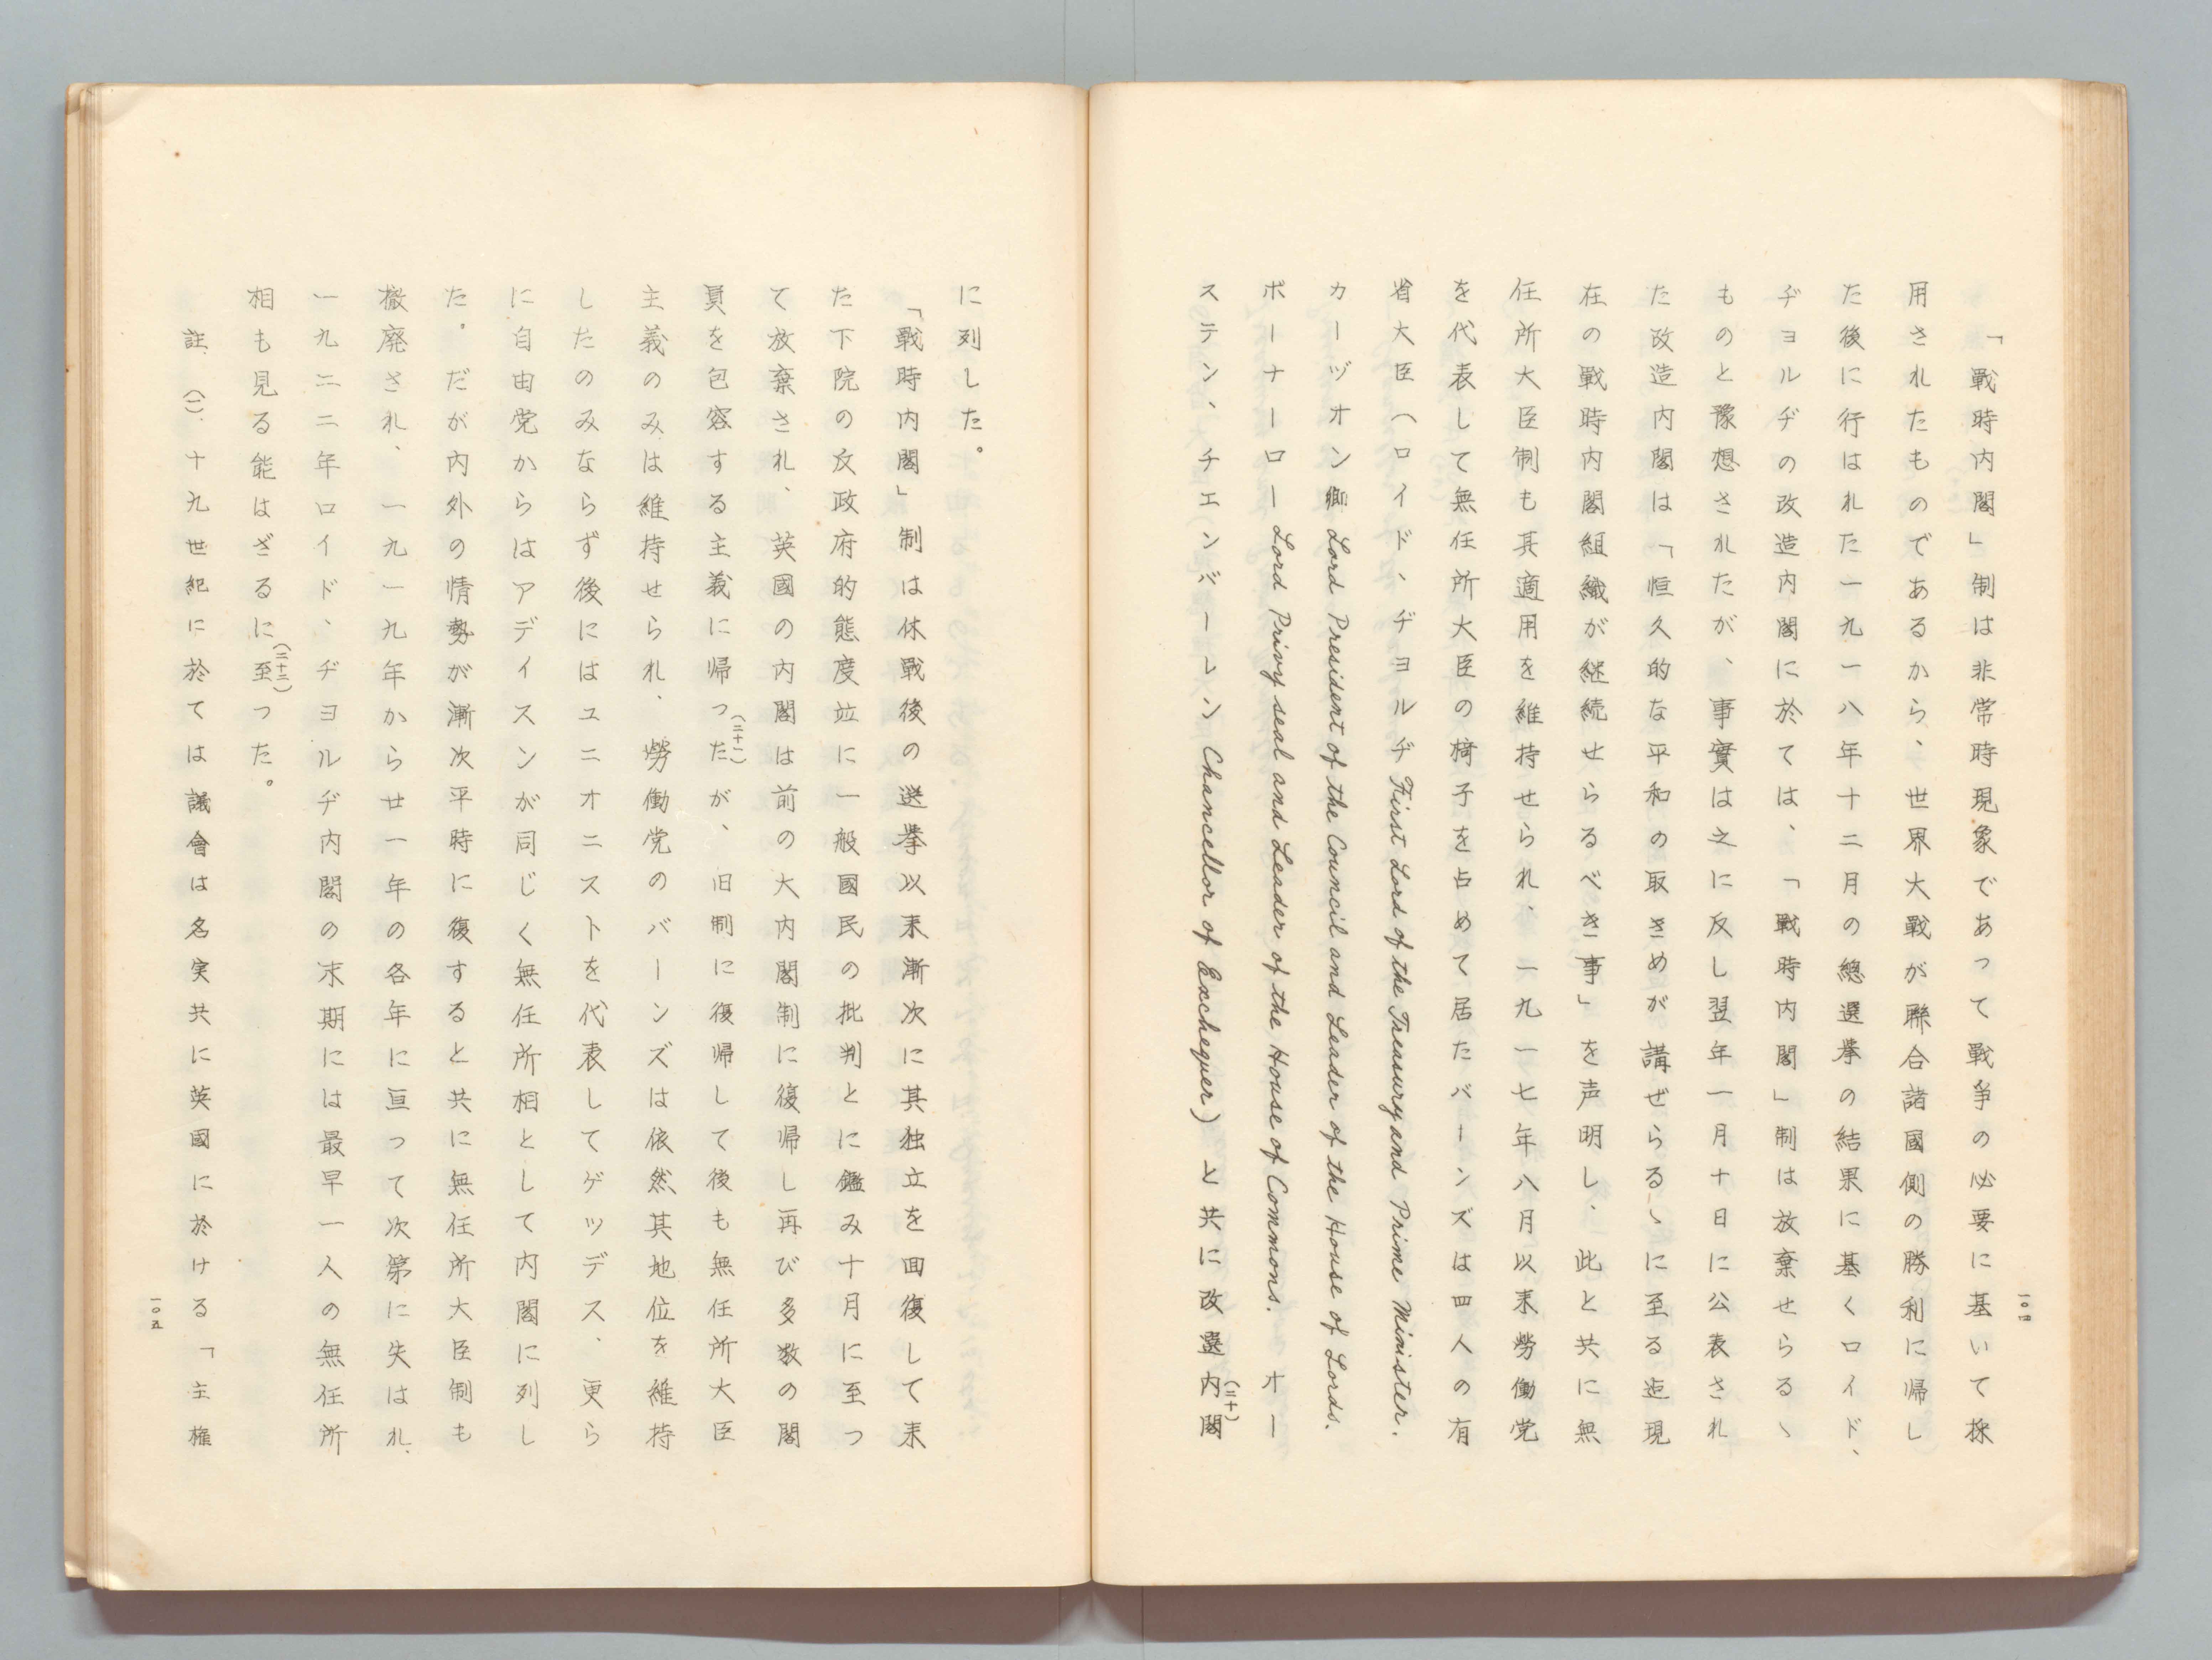 一〇四
「戰時内閣」制は非常時現象であって戰争の必要に基いて採
用されたものであるから、世界大戰が聯合諸國側の勝利に帰し
た後に行はれた一九一八年十二月の總選挙の結果に基くロイド、
ヂヨルヂの改造内閣に於ては、「戰時内閣」制は放棄せらるゝ
ものと豫想されたが、事實は之に反し翌年一月十日に公表され
た改造内閣は「恒久的な平和の取きめが講ぜらるゝに至る迄現
在の戰時内閣組織が継続せらるべき事」を声明し、此と共に無
任所大臣制も其適用を維持せられ、一九一七年八月以来勞働党
を代表して無任所大臣の椅子を占めて居たバーンズは四人の有
省大臣（ロイド、ヂヨルヂ First Lord of the Treasury and Prime Minister.
カーヅオン卿 Lord President of the Council and Leader of the House of Lords.
ボーナーロー Lord Privy seal and Leader of the House of Commons. オー
ステン、チエンバーレン Chancellor of Exchequer）と共に改選内閣(二十)
に列した。
「戰時内閣」制は休戰後の選挙以来漸次に其独立を回復して来
た下院の反政府的態度竝に一般國民の批判とに鑑み十月に至つ
て放棄され、英國の内閣は前の大内閣制に復帰し再び多数の閣
員を包容する主義に帰った(二十一)が、旧制に復帰して後も無任所大臣
主義のみは維持せられ、勞働党のバーンズは依然其地位を維持
したのみならず後にはユニオニストを代表してゲッデス、更ら
に自由党からはアデイスンが同じく無任所相として内閣に列し
た。だが内外の情勢が漸次平時に復すると共に無任所大臣制も
撤廃され、一九一九年から廿一年の各年に亘って次第に失はれ、
一九二二年ロイド、ヂヨルヂ内閣の末期には最早一人の無任所
相も見る能はざるに至(二十二)った。
註、(一)、十九世紀に於ては議會は名実共に英國に於ける「主権
一〇五